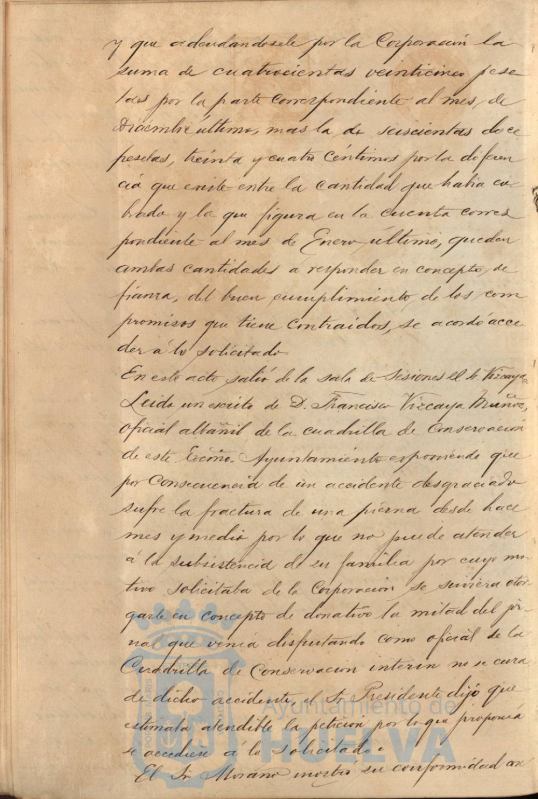 y que adeudandosele por la Corporación la
suma de cuatrocientas veinticinco pese
tas por la parte correspondiente al mes, de
Diciembre último, mas la de seiscientas doce
pesetas, treinta y cuatro céntimos por la diferen
cia que existe entre la cantidad que habia co
brado y la que figura en la cuenta corres
pondiente al mes de Enero último, queden
ambas cantidades a responder en concepto, de
fianza, del buen cumplimiento, de los com
promisos que tiene contraidos, se acordo acce
der á lo solicitado
En este acto salió de la sala de Sesiones el Sr Vizcaya
Leido un escrito de D. Francisco Vizcaya Muñoz,
oficial albañil de la cuadrilla de Conservación
de este Excmo. Ayuntamiento exponiendo que
por consecuencia de un accidente desgraciado
sufre la fractura de una pierna desde hace
mes y medio por lo que no puede atender
á la subsistencia de su familia por cuyo mo
tivo solicitaba de la Corporacion se sirviera otor
garle en concepto de donativo la mitad del jor
nal que venia disfrutando como oficial de la
Cuadrilla de Conservacion interin no se cura
de dicho accidente, el Sr. Presidente dijo que
estimaba atendible la peticion por lo que proponia
se accediese á lo solicitado.
El Sr. Morano mostro su conformidad
Ayuntamiento de
HUELVA